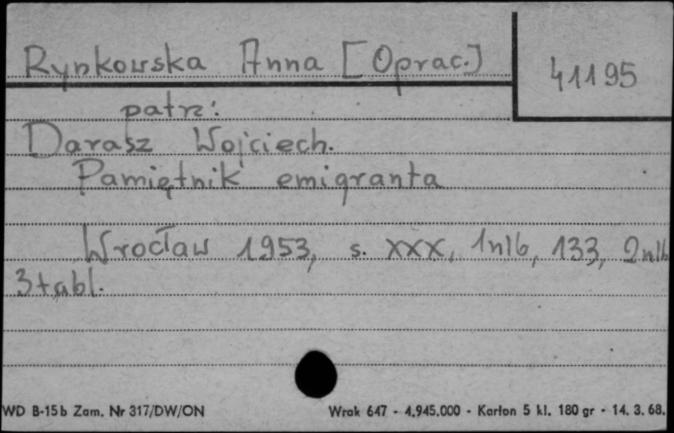 Rynkowska Anna [Oprac.]
41195
patrz:
Darasz Wojciech.
Pamiętnik emigranta
Wrocław 1953, s. XXX, 1nlb, 133, 2nlb
3tabl.
WD B-15b Zam. Nr 317/DW/ON
Wrak 647 - 4.945.000 - Karton 5 kl. 180 gr - 14. 3. 68.